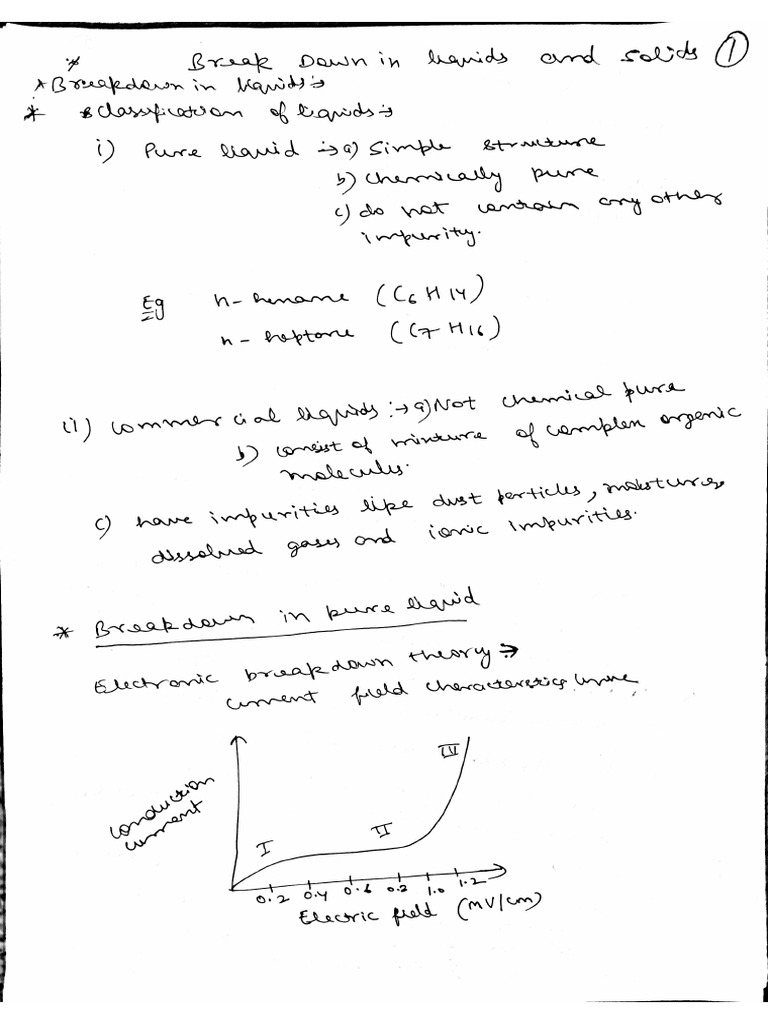 * Break Down in liquids and solids 1
* Breakdown in liquids:→
* Classification of liquids:→
i) Pure liquid :→ a) Simple structure
b) chemically pure
c) do not contain any other
impurity.
Eg n-hexane (C6 H14)
n-heptane (C7 H16)
(ii) commercial liquids :→ a) Not chemical pure
b) consist of mixture of complex organic
molecules.
c) have impurities like dust particles, moistures
dissolved gases and ionic impurities.
* Breakdown in pure liquid
Electronic breakdown theory →
current field characteristics
conduction
current
I
II
III
0.2 0.4 0.6 0.8 1.0 1.2
Electric field (MV/cm)